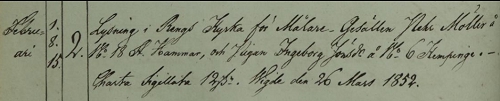 Febru- 1. 2. Lysning i Rengs Kyrka för Målare-Gesällen Pehr Möller å
ari 8. No 18 St. Hammar, och Pigan Ingeborg Jönsdr å No 6 Kempinge.-
15. Charta Sigillata 12 s. Wigde den 26 Mars 1852.